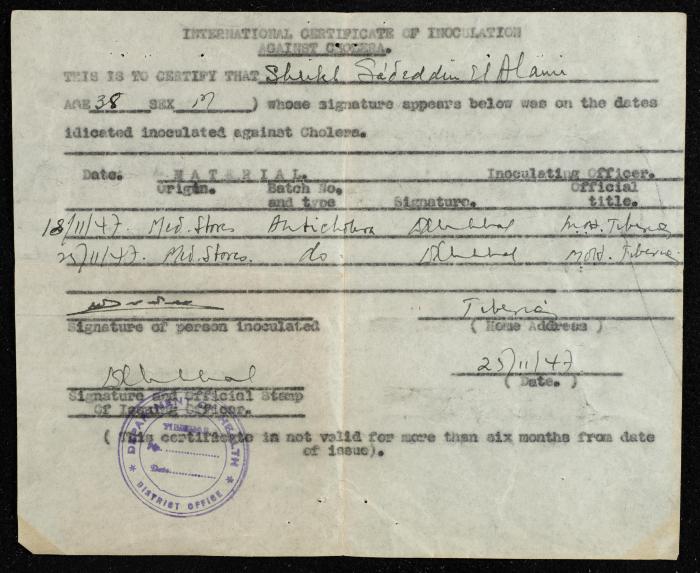 INTERNATIONAL CERTIFICATE OF INOCULATION
AGAINST CHOLERA.
THIS IS TO CERTIFY THAT Sheikh Sa'deddin El Alami
AGE 38 SEX M ) whose signature appears below was on the dates
idicated inoculated against Cholera.
Date. MATERIAL. Inoculating Officer.
Origin. Batch No. Official
and type Signature. title.
18/11/47. Med. Stores Anticholera M.O.H. Tiberias
25/11/47. Med. Stores. do M.O.H. Tiberias
Tiberias
Signature of person inoculated ( Home Address )
25/11/47
( Date. )
Signature and Official Stamp
Of Issuing Officer.
( This certificate in not valid for more than six months from date
of issue).
DEPARTMENT OF HEALTH
TIBERIAS
No.
Date
DISTRICT OFFICE